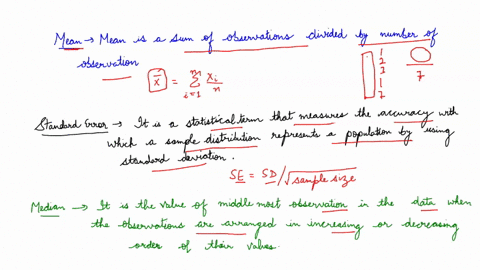 Mean → Mean is a sum of observations divided by number of
observation
x̄ = Σ i=1 n xi/n
1
2
3
1
7
7
Standard Error → It is a statistical term that measures the accuracy with
which a sample distribution represents a population by using
standard deviation.
SE = SD/√sample size
Median → It is the value of middle most observation in the data when
the observations are arranged in increasing or decreasing
order of their values.